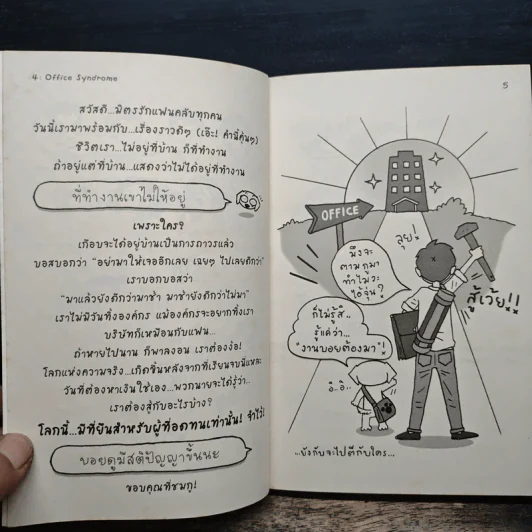 4 : Office Syndrome
สวัสดี...มิตรรักแฟนคลับทุกคน
วันนี้เรามาพร้อมกับ...เรื่องราวดีๆ (เอ๊ะ! คำนี้คุ้นๆ)
ชีวิตเรา...ไม่อยู่ที่บ้าน ก็ที่ทำงาน
ถ้าอยู่แต่ที่บ้าน...แสดงว่าไม่ได้อยู่ที่ทำงาน
ที่ทำงานเขาไม่ให้อยู่
เพราะใคร?
เกือบจะได้อยู่บ้านเป็นการถาวรแล้ว
บอสบอกว่า "อย่ามาให้เจออีกเลย เฉยๆ ไปเลยดีกว่า"
เราบอกบอสว่า
"มาแล้วยังดีกว่ามาช้า มาช้ายังดีกว่าไม่มา"
เราไม่มีวันทิ้งองค์กร แม้องค์กรจะอยากทิ้งเรา
บริษัทก็เหมือนกับแฟน...
ถ้าหายไปนาน ก็พาลงอน เราต้องง้อ!
โลกแห่งความจริง...เกิดขึ้นหลังจากที่เรียนจบนี่แหละ
วันที่ต้องหาเงินใช้เอง...พวกนายจะได้รู้ว่า..
เราต้องสู้กับอะไรบ้าง?
โลกนี้...มีที่ยืนสำหรับผู้ที่อดทนเท่านั้น! จำไว้!
บอยดูมีสติปัญญาขึ้นนะ
ขอบคุณที่ชมกู!
5
OFFICE
ลุย!
มึงจะ
ตามกูมา
ทำไมวะ
ไอ้จุ่น?
สู้เว้ย!!
ก็ไม่รู้สิ..
รู้แค่ว่า...
"งานบอยต้องมา"!
อิ-อิ..
...ยังกับจะไปตีกับใคร...